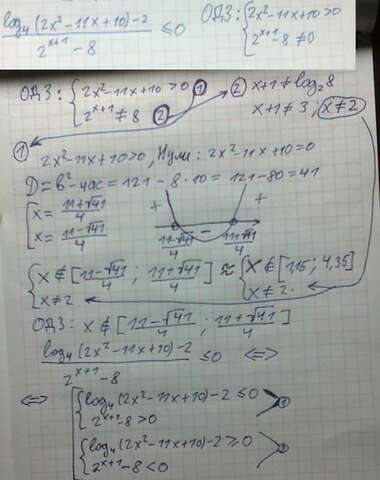 log₄(2x²-11x+10)-2 / 2ˣ⁺¹-8 ≤0 ОДЗ: {2x²-11x+10>0
2ˣ⁺¹-8≠0
ОДЗ: {2x²-11x+10>0 ① ② x+1≠log₂8
2ˣ⁺¹≠8 ② x+1≠3; x≠2
① 2x²-11x+10>0, Нули: 2x²-11x+10=0
D=b²-4ac=121-8·10=121-80=41
[x=11+√41 / 4 + +
x=11-√41 / 4 11-√41 / 4 - 11+√41 / 4
{x∉[11-√41 / 4; 11+√41 / 4] ≈ {x∉[1,15; 4,35]
x≠2 x≠2.
ОДЗ: x∉[11-√41 / 4; 11+√41 / 4]
log₄(2x²-11x+10)-2 / 2ˣ⁺¹-8 ≤0 <=>
<=> [{log₄(2x²-11x+10)-2≤0 ①
2ˣ⁺¹-8>0
{log₄(2x²-11x+10)-2≥0 ②
2ˣ⁺¹-8<0